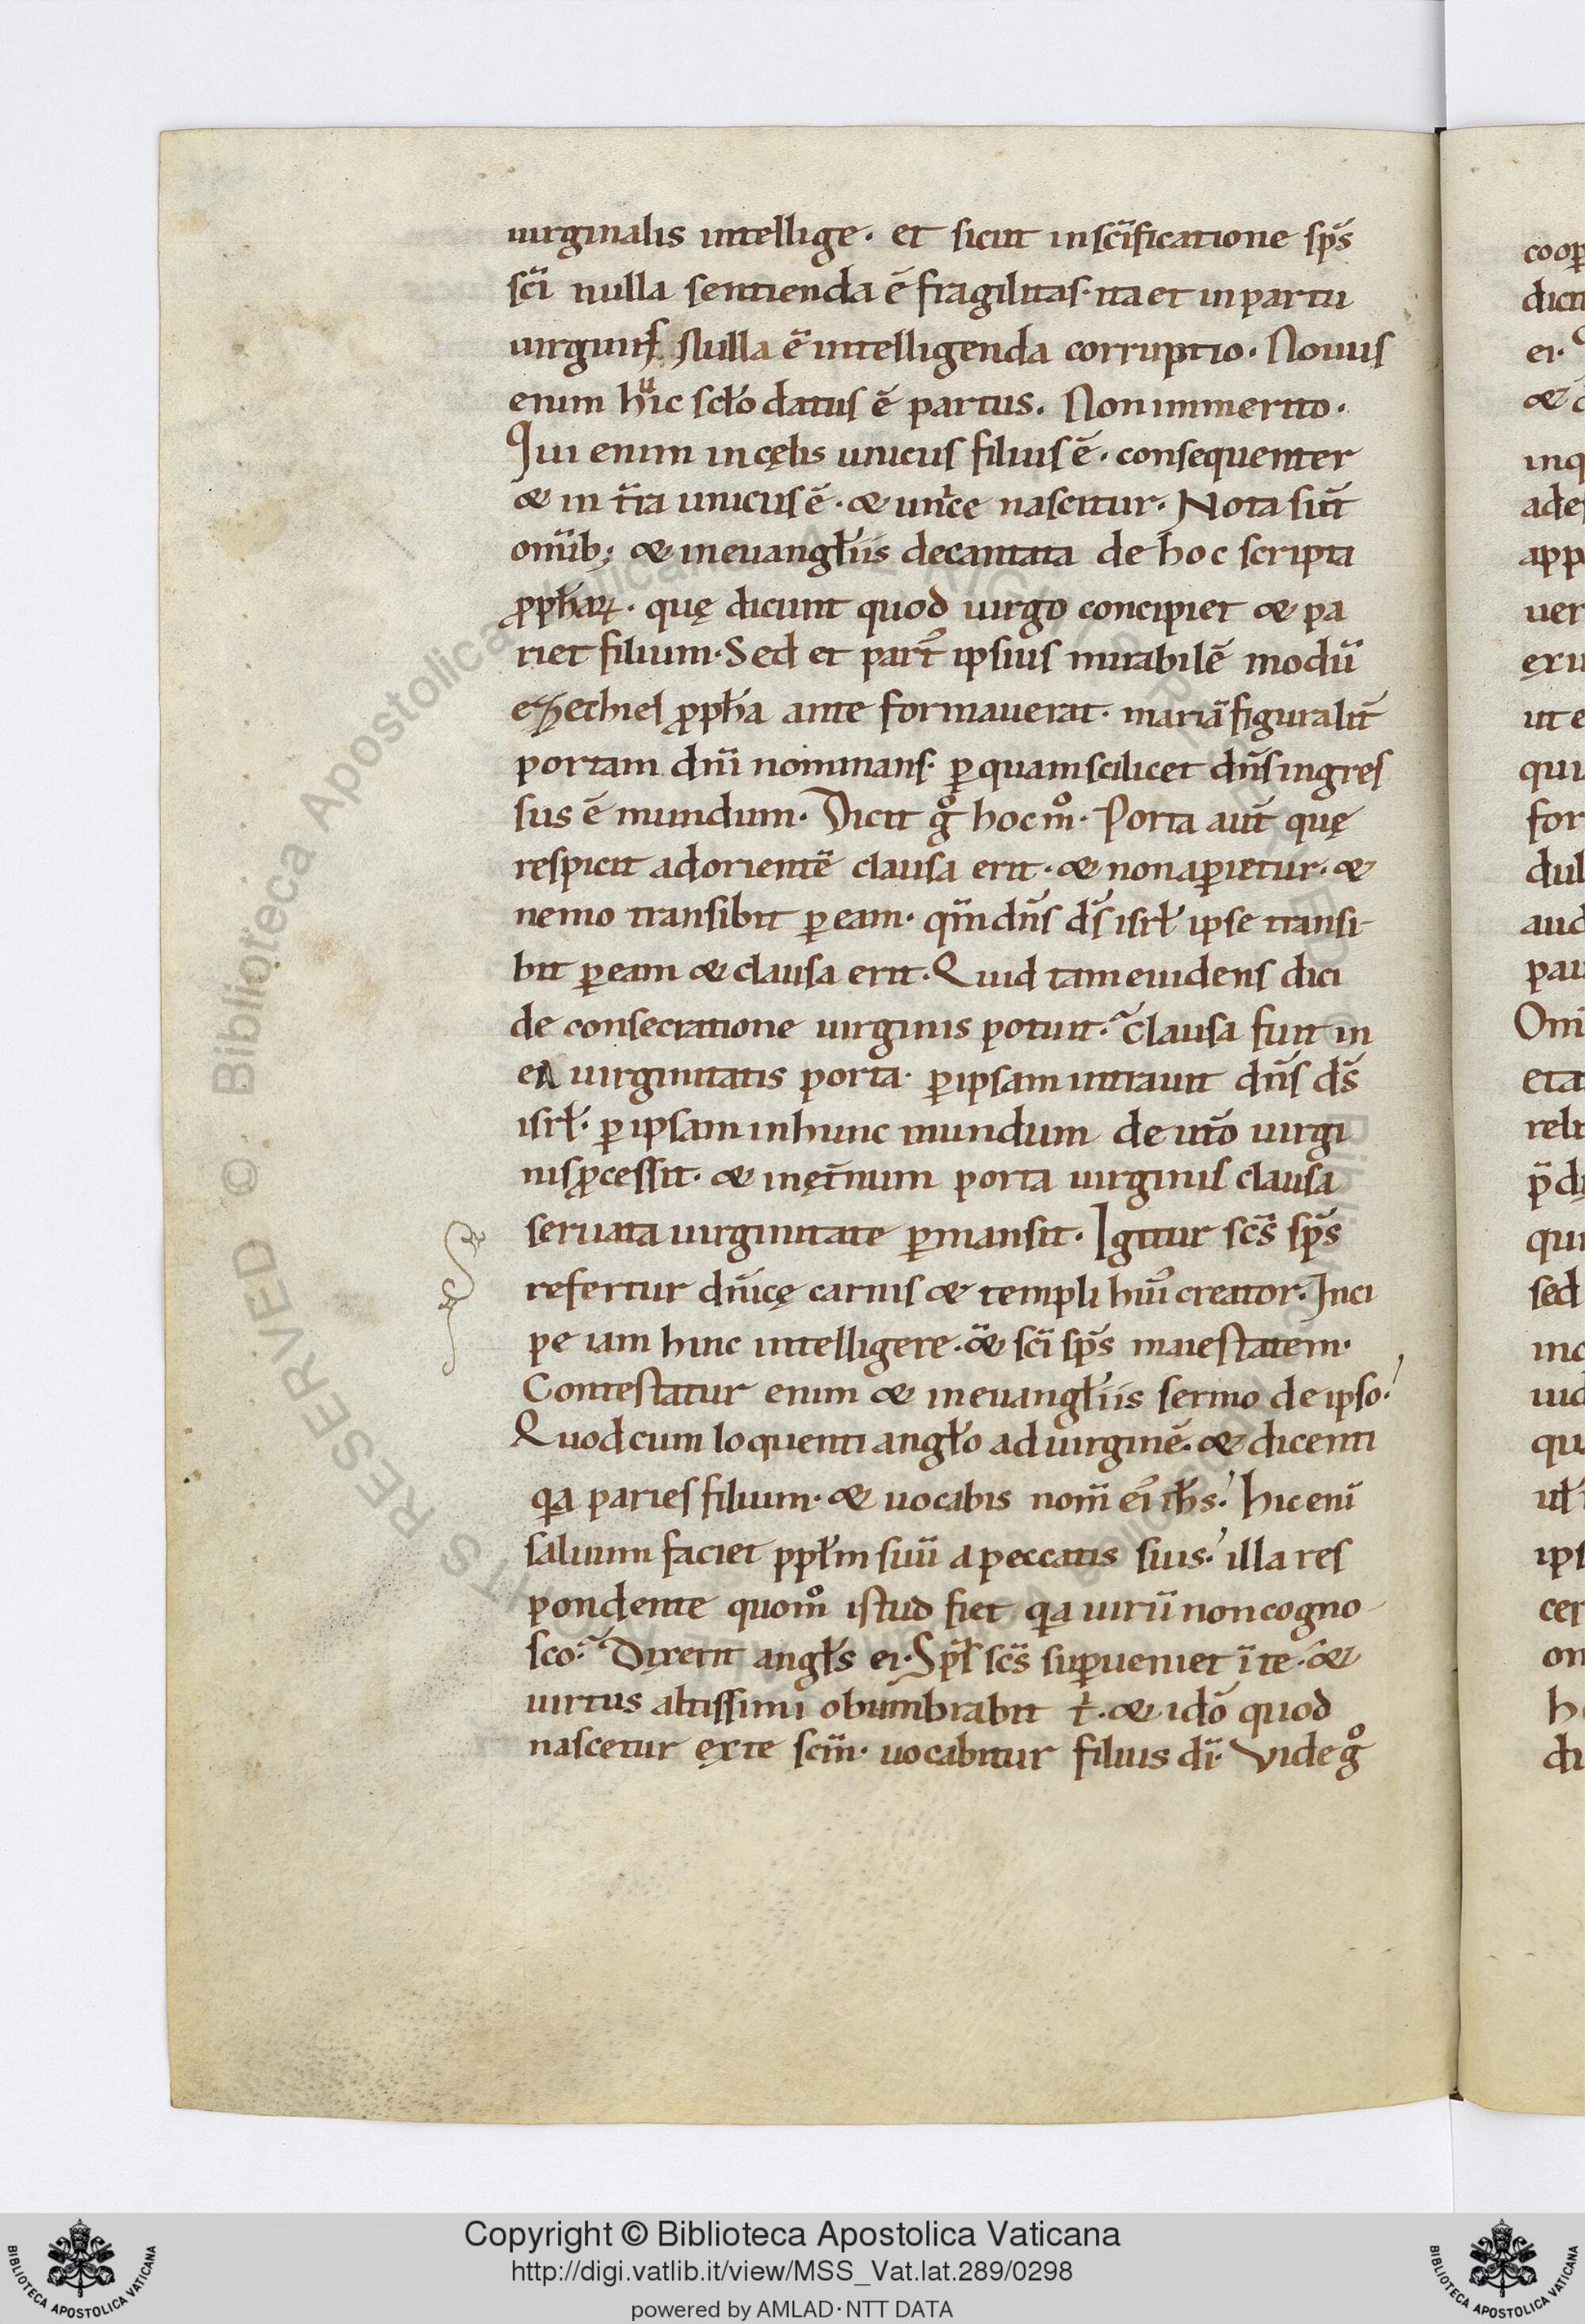 uirginalis intellige. et sicut in sc̄ificatione sp̄s
sc̄i nulla sentienda ē fragilitas. ita et in partu
uirginis Nulla ē intelligenda corruptio. Nouus
enim huic scło datus ē partus. Non immerito.
Qui enim in cęlis unicus filius ē. consequenter
& in t̄ra unicus ē. & unice nascitur. Nota sūt
om̄ib; & in euangłiis decantata de hoc scripta
ꝓpħaꝝ. quę dicunt quod uirgo concipiet & pa
riet filium. Sed et part᾽ ipsius mirabilē modū
ezechiel ꝓpħa ante formauerat. mariā figuralit̄
portam dn̄i nominans. ꝑ quam scilicet dn̄s ingres
sus ē mundum. Dicit gͦ hoc mͦ. Porta aut̄ quę
respicit ad orientē clausa erit. & non aꝑietur. &
nemo transibit ꝑ eam. qm̄ dn̄s ds̄ isrł ipse transi-
bit ꝑ eam & clausa erit. Quid tam euidens dici
de consecratione uirginis potuit? Clausa fuit in
eA uirginitatis porta. ꝑ ipsam intrauit dn̄s ds̄
isrł. ꝑ ipsam in hunc mundum de utō uirgi
nis ꝓcessit. & in ęt̄num porta uirginis clausa
seruata uirginitate ꝑmansit. Igitur sc̄s sp̄s
refertur dn̄icę carnis & templi hui᾽ creator. Inci
pe iam hinc intelligere. & sc̄i sp̄s maiestatem.
Contestatur enim & in euangłiis sermo de ipso.
Quod cum loquenti angło ad uirginē. & dicenti
qa paries filium. & uocabis nom̄ ei᾽ iħs. hic eni
saluum faciet ppłm suū a peccatis suis. illa res
pondente quomͦ istud fiet qa uirū non cogno
sco? Dixerit angłs ei. Sp̄s sc̄s suꝑueniet ī te. &
uirtus altissimi obumbrabit t̄. & idō quod
nascetur ęx te scm̄. uocabitur filius dī. Vide gͦ
Copyright © Biblioteca Apostolica Vaticana
http://digi.vatlib.it/view/MSS_Vat.lat.289/0298
powered by AMLAD·NTT DATA
BIBLIOTECA APOSTOLICA VATICANA
BIBLIOTECA APOSTOLICA VATICANA